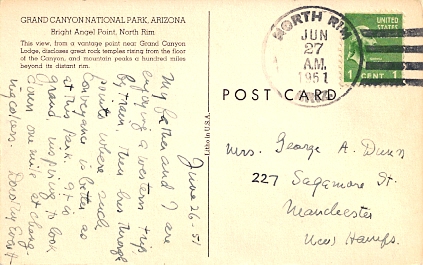 GRAND CANYON NATIONAL PARK, ARIZONA
Bright Angel Point, North Rim
This view, from a vantage point near Grand Canyon
Lodge, discloses great rock temples rising from the floor
of the Canyon, and mountain peaks a hundred miles
beyond its distant rim.
June 26-51
My father and I are
enjoying a western trip
by train, then bus through
points where such
conveyance is better as
at this Park. It is
grand, inspiring to look
down one mile at chang-
ing colors. Dorothy
Litho in U.S.A.
NORTH RIM
JUN
27
A.M.
1951
ARIZ.
UNITED STATES
1 CENT 1
POST CARD
Mrs. George A. Dunn
227 Sagamore St.
Manchester
New Hamps.